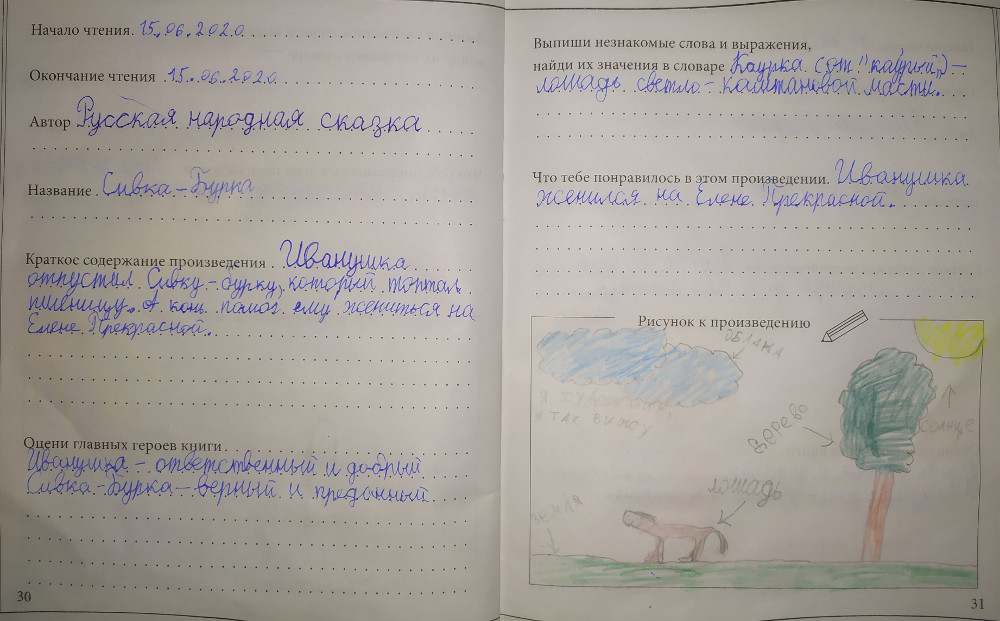 Начало чтения. 15.06.2020.
Окончание чтения 15.06.2020.
Автор Русская народная сказка
Название. Сивка-Бурка
Краткое содержание произведения. Иванушка
отпустил Сивку-бурку, который топтал
пшеницу. А конь помог ему жениться на
Елене Прекрасной.
Оцени главных героев книги.
Иванушка - ответственный и добрый
Сивка-Бурка - верный и преданный.
30
Выпиши незнакомые слова и выражения,
найди их значения в словаре Каурка (от "каурый") -
лошадь светло-каштановой масти.
Что тебе понравилось в этом произведении. Иванушка
женился на Елене Прекрасной.
Рисунок к произведению
ОБЛАКА
Я
Я ТАК ВИЖУ
ДЕРЕВО
СОЛНЦЕ
ЛОШАДЬ
ЗЕМЛЯ
31